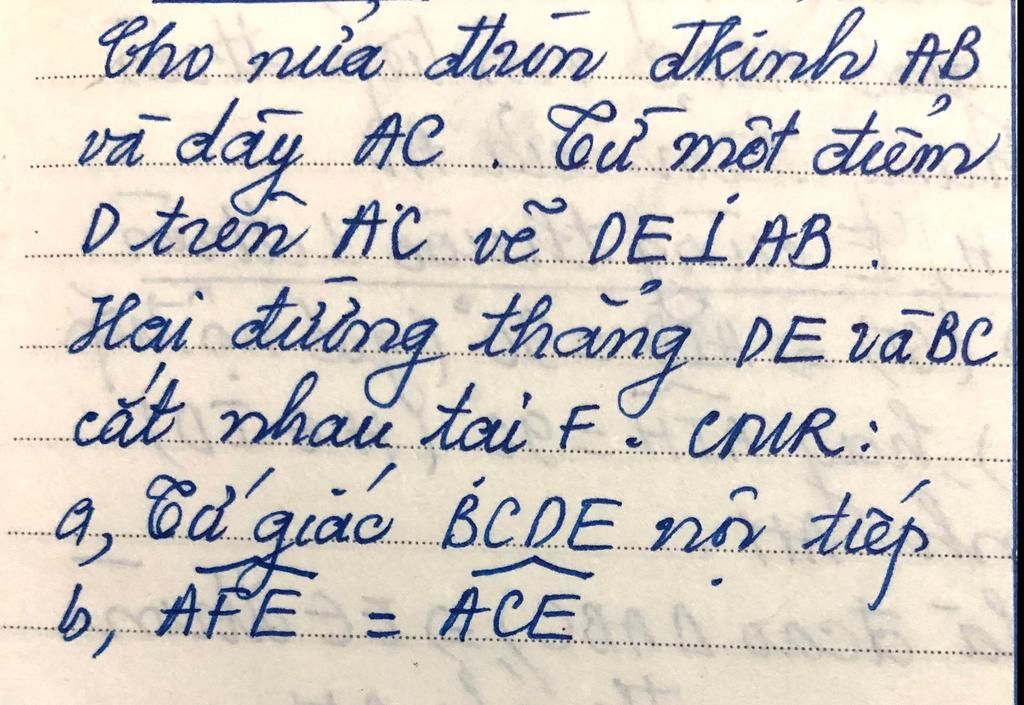 Cho nửa đtròn đkính AB
và dây AC . Từ một điểm
D trên AC vẽ DE ⊥ AB .
Hai đường thẳng DE và BC
cắt nhau tại F . CMR :
a, Tứ giác BCDE nội tiếp
b, \widehat{AFE} = \widehat{ACE}